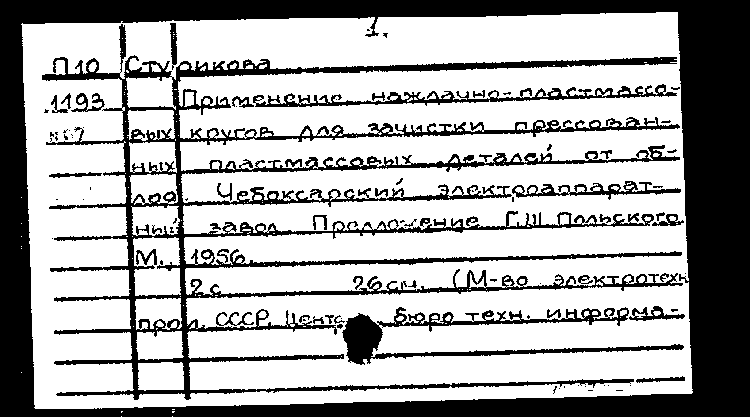 1.
П10 Стурикова
1193 Применение наждачно-пластмассо-
№67 вых кругов для зачистки прессован-
ных пластмассовых деталей от об-
лоя. Чебоксарский электроаппарат-
ный завод. Предложение Г.Ш. Польского
М., 1956.
2 с. 26 см. (М-во электротехн
пром. СССР, Центр. бюро техн. информа-